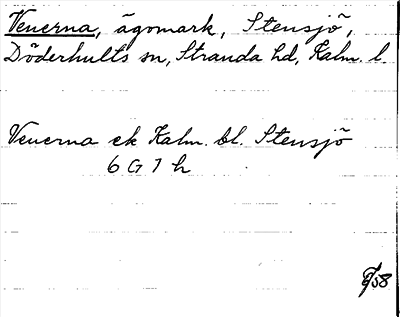 Venerna, ägomark, Stensjö,
Döderhults sn, Stranda hd, Kalm. l.
Venerna ek Kalm. bl. Stensjö
6 G 1 h
/58